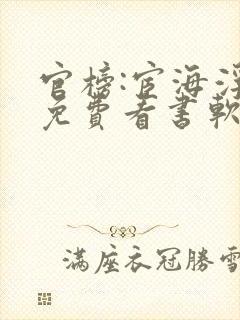 官榜:宦海浮
免費看書軟
滿座衣冠勝雪